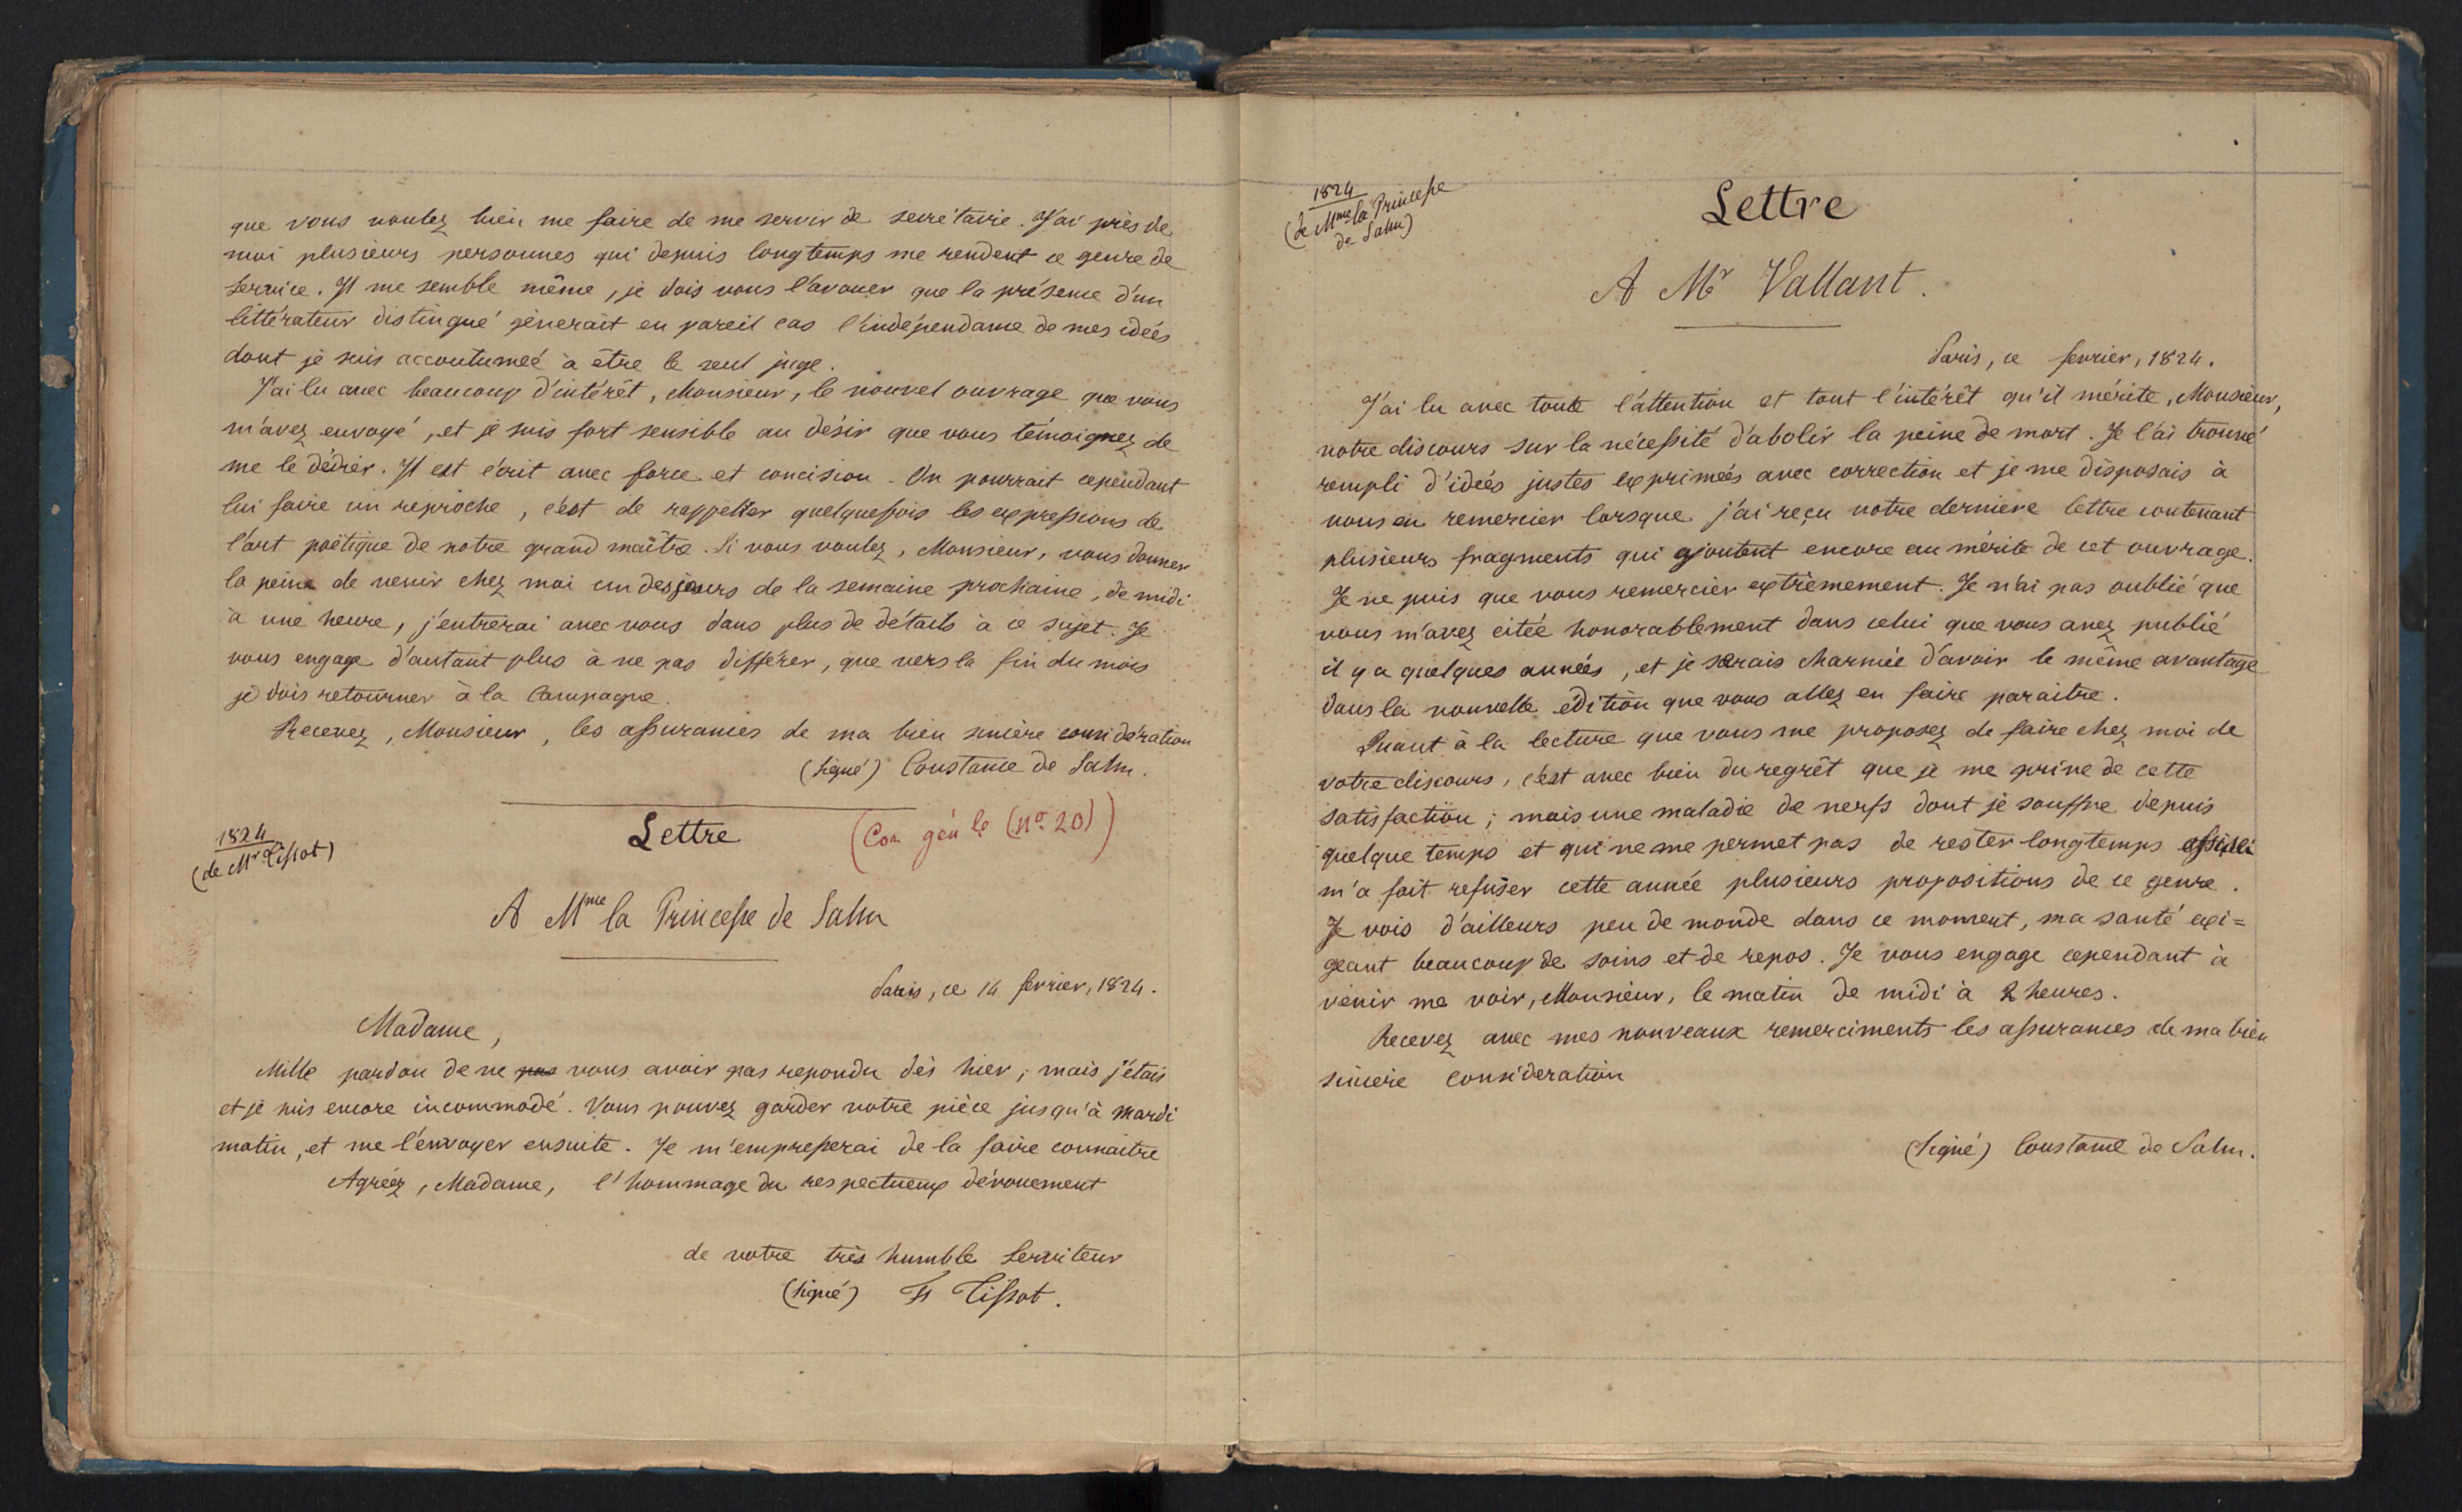 que vous voulez bien me faire de me servir de secrétaire. J'ai près de
moi plusieurs personnes qui depuis longtemps me rendent ce genre de
service. Il me semble même, je dois vous l'avouer que la présence d'un
littérateur distingué gènerait en pareil cas l'indépendance de mes idées
dont je suis accoutumée à être le seul juge.
J'ai lu avec beaucoup d'intérêt, Monsieur, le nouvel ouvrage que vous
m'avez envoyé, et je suis fort sensible au désir que vous témoignez de
me le dédier. Il est écrit avec force et concision. On pourrait cependant
lui faire un reproche, c'est de rappeller quelquefois les expressions de
l'art poëtique de notre grand maître. Si vous voulez, Monsieur, vous donner
la peine de venir chez moi un des jours de la semaine prochaine, de midi
à une heure, j'entrerai avec vous dans plus de détails à ce sujet. Je
vous engage d'autant plus à ne pas différer, que vers la fin du mois
je dois retourner à la Campagne.
Recevez, Monsieur, les assurances de ma bien sincère considération
(Signé) Constance de Salm.
1824
(de Mr Tissot)
Lettre
(Cor. génle (no. 20))
A Mme la Princesse de Salm
Paris, ce 14 fevrier, 1824.
Madame,
Mille pardon de ne pas vous avoir pas repondu dès hier; mais j'étais
et je suis encore incommodé. Vous pouvez garder votre pièce jusqu'à mardi
matin, et me l'envoyer ensuite. Je m'empresserai de la faire connaitre
Agréez, Madame, l'hommage du respectueux dévouement
de votre très humble Serviteur
(Signé) Tissot.
1824
(de Mme la Princesse
de Salm)
Lettre
A Mr Vallant.
Paris, ce fevrier, 1824.
J'ai lu avec toute l'attention et tout l'intérêt qu'il mérite, Monsieur,
votre discours sur la nécessité d'abolir la peine de mort. Je l'ai trouvé
rempli d'idées justes exprimées avec correction et je me disposais à
vous en remercier lorsque j'ai reçu votre derniere lettre contenant
plusieurs fragments qui ajoutent encore au mérite de cet ouvrage.
Je ne puis que vous remercier extrèmement. Je n'ai pas oublié que
vous m'avez citée honorablement dans celui que vous avez publié
il y a quelques années, et je serais charmée d'avoir le même avantage
dans la nouvelle édition que vous allez en faire paraitre.
Quant à la lecture que vous me proposez de faire chez moi de
votre discours, c'est avec bien du regrêt que je me prive de cette
satisfaction; mais une maladie de nerfs dont je souffre depuis
quelque temps et qui ne me permet pas de rester longtemps
m'a fait refuser cette année plusieurs propositions de ce genre.
Je vois d'ailleurs peu de monde dans ce moment, ma santé exi=
geant beaucoup de soins et de repos. Je vous engage cependant à
venir me voir, Monsieur, le matin de midi à 2 heures.
Recevez avec mes nouveaux remerciments les assurances de ma bien
sincere consideration
(Signé) Constance de Salm.